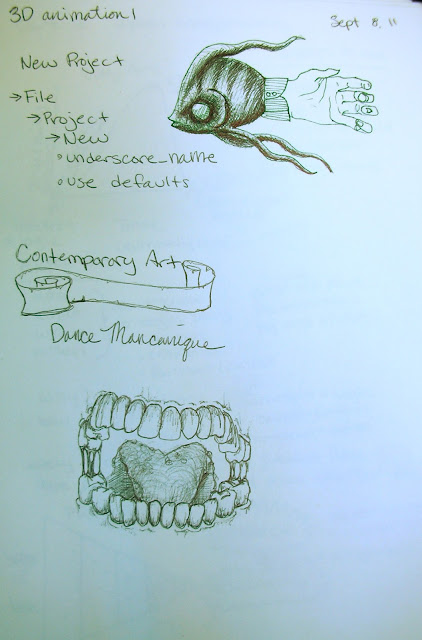 3D animation 1
Sept 8, 11
New Project
→ File
→ Project
→ New
° underscore_name
° use defaults
Contemporary Art
Dance Mancanique